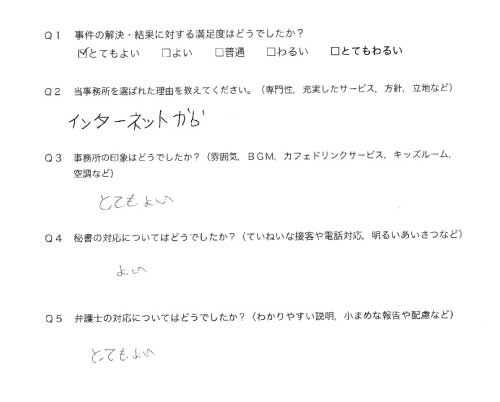 Q1 事件の解決・結果に対する満足度はどうでしたか?
☑とてもよい □よい □普通 □わるい □とてもわるい
Q2 当事務所を選ばれた理由を教えてください。(専門性,充実したサービス,方針,立地など)
インターネットから
Q3 事務所の印象はどうでしたか?(雰囲気,BGM,カフェドリンクサービス,キッズルーム,
空調など)
とてもよい
Q4 秘書の対応についてはどうでしたか?(ていねいな接客や電話対応,明るいあいさつなど)
よい
Q5 弁護士の対応についてはどうでしたか?(わかりやすい説明,小まめな報告や配慮など)
とてもよい